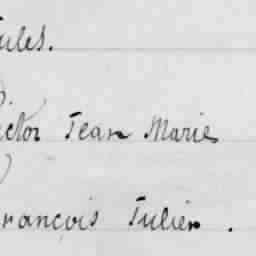 Jules.
Victor Jean Marie
François Julien.